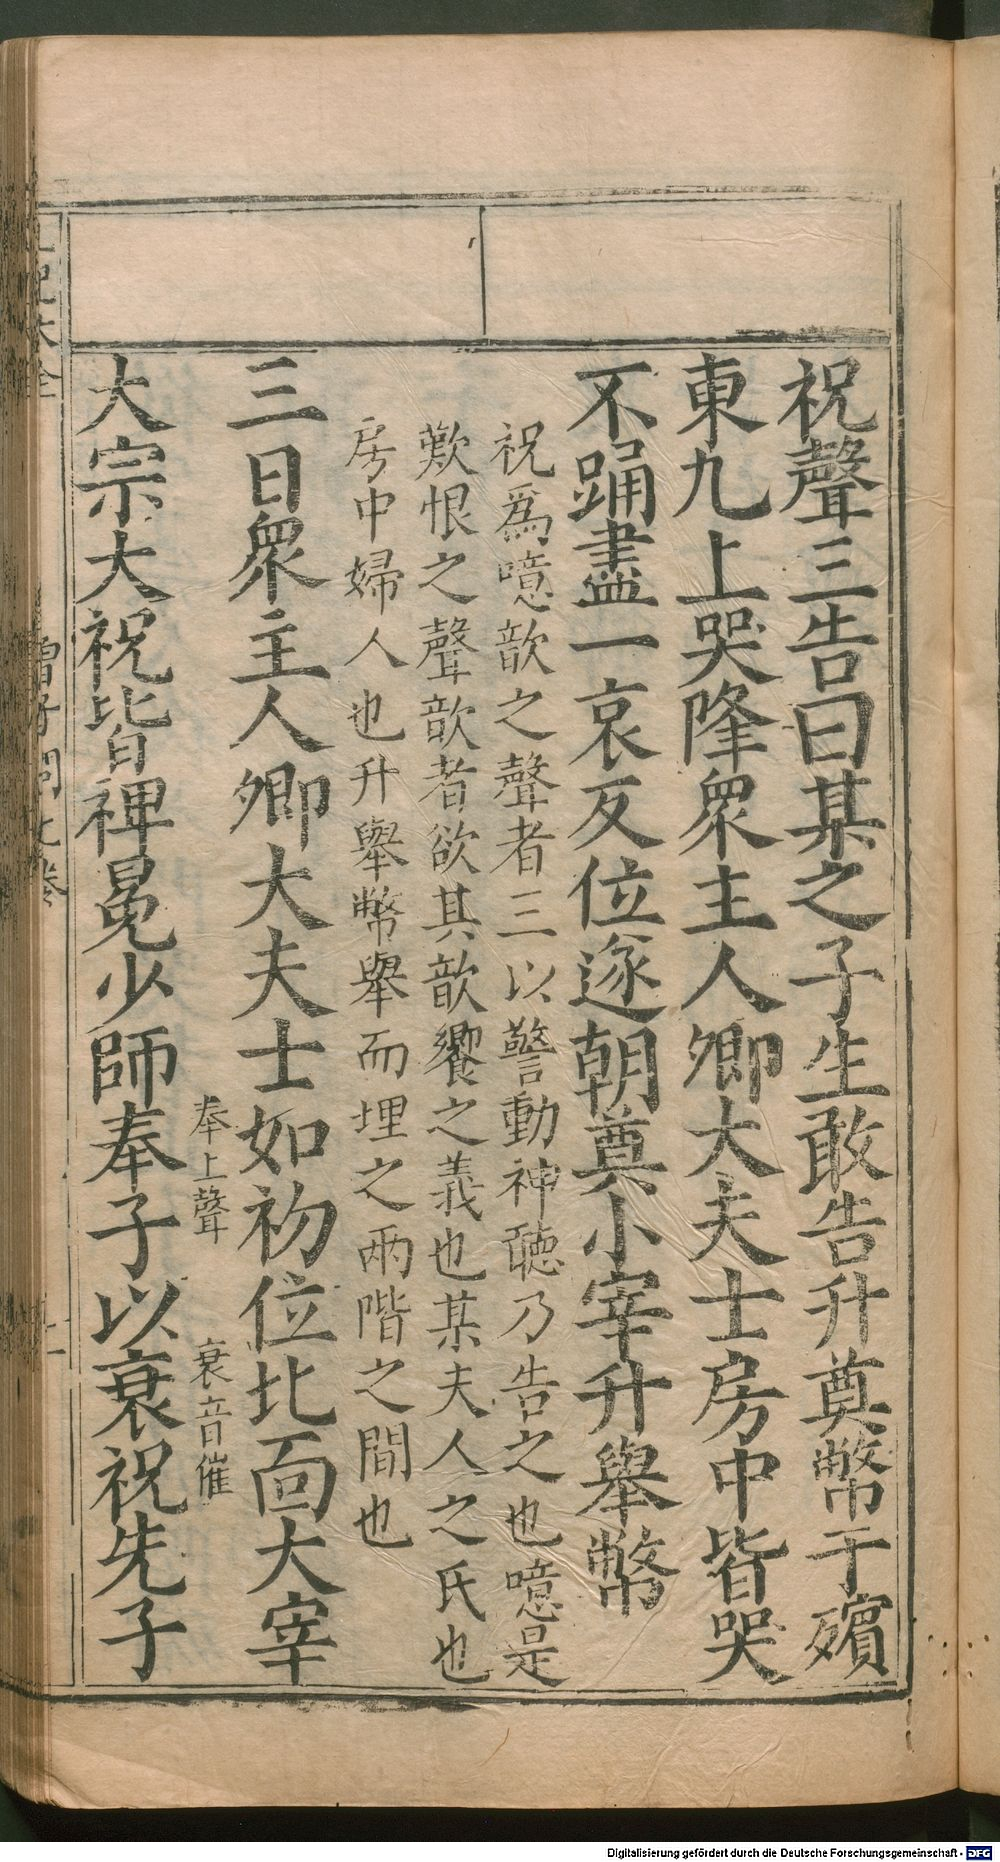 祝聲三告曰某之子生敢告升奠幣于殯
東九上哭降衆主人卿大夫士房中皆哭
不踊盡一哀反位遂朝奠小宰升舉幣
祝爲噫歆之聲者三以警動神聽乃告之也噫是
歎恨之聲歆者欲其歆饗之義也某夫人之氏也
房中婦人也升舉幣舉而埋之兩階之間也
三日衆主人卿大夫士如初位北面大宰
奉上聲 衰音催
大宗大祝皆裨冕少師奉子以衰祝先子
大全
曾子問 卷
Digitalisierung gefördert durch die Deutsche Forschungsgemeinschaft - DFG